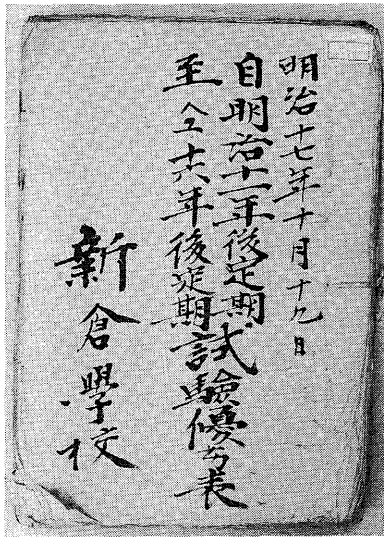 明治十七年十月十九日
自明治十一年後定期
至仝十六年後定期試驗優劣表
新倉學校